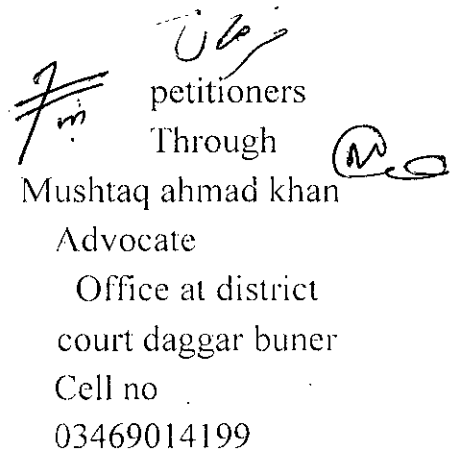 petitioners
Through
Mushtaq ahmad khan
Advocate
Office at district
court daggar buner
Cell no
03469014199